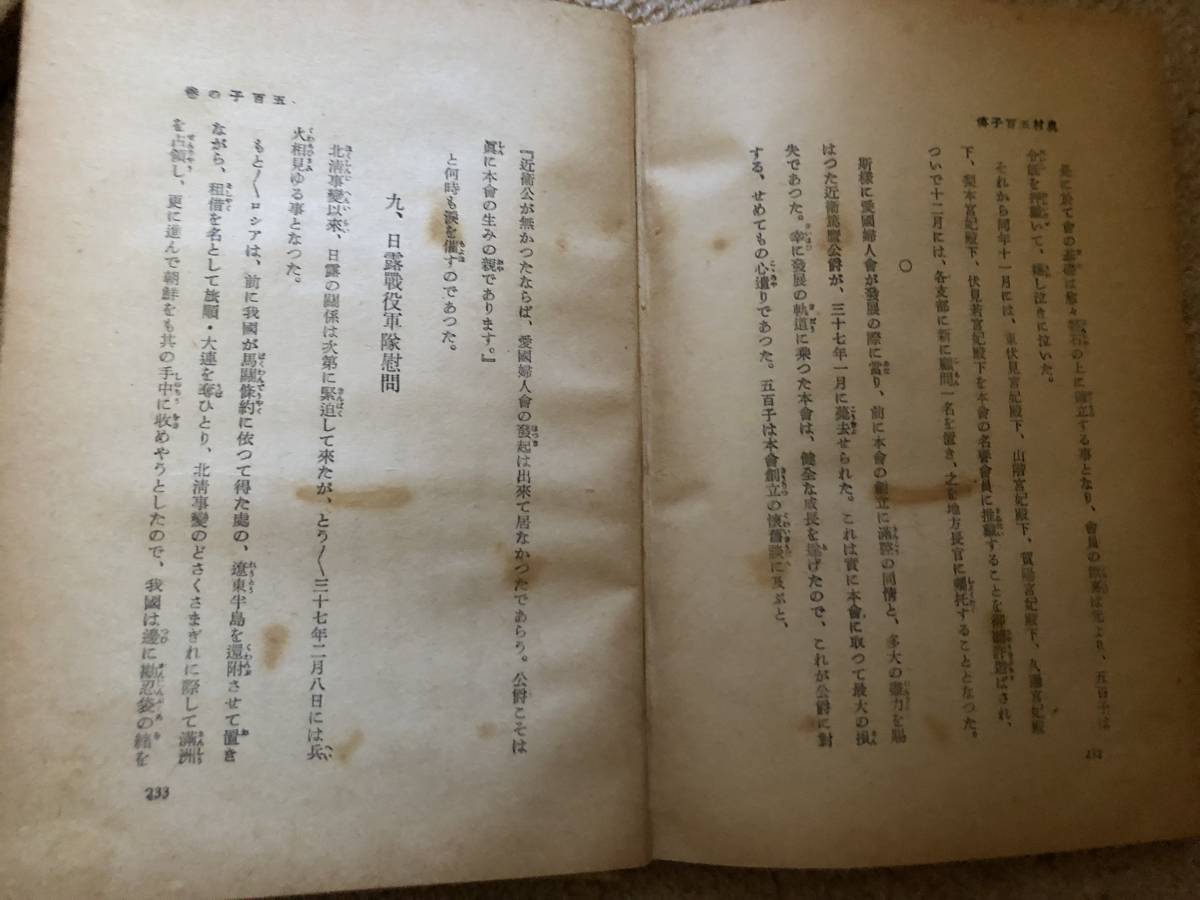 奥村五百子傳
是に於て會の基礎は愈々磐石の上に確立する事となり、會員の歡喜は元より、五百子は
令旨を押戴いて、嬉し泣きに泣いた。
それから同年十一月には、東伏見宮妃殿下、山階宮妃殿下、賀陽宮妃殿下、久邇宮妃殿
下、梨本宮妃殿下、伏見若宮妃殿下を本會の名譽會員に推戴することを御聽許遊ばされ、
ついで十二月には、各支部に新に顧問一名を置き、之を地方長官に囑托することとなつた。
○
斯樣に愛國婦人會が發展の際に當り、前に本會の創立に滿腔の同情と、多大の盡力を賜
はつた近衞篤麿公爵が、三十七年一月に薨去せられた。これは實に本會に取つて最大の損
失であつた。幸に發展の軌道に乘つた本會は、健全な成長を遂げたので、これが公爵に對
する、せめてもの心遣りであつた。五百子は本會創立の懷舊談に及ぶと、
232
五百子の卷
『近衞公が無かつたならば、愛國婦人會の發起は出來て居なかつたであらう。公爵こそは
眞に本會の生みの親であります。』
と何時も淚を催すのであつた。
九、日露戰役軍隊慰問
北淸事變以來、日露の關係は次第に緊迫して來たが、とう〱三十七年二月八日には兵
火相見ゆる事となつた。
もと〱ロシアは、前に我國が馬關條約に依つて得た處の、遼東半島を還附させて置き
ながら、租借を名として旅順・大連を奪ひとり、北淸事變のどさくさまぎれに際して滿洲
を占領し、更に進んで朝鮮をも其の手中に收めやうとしたので、我國は遂に勘忍袋の緖を
233